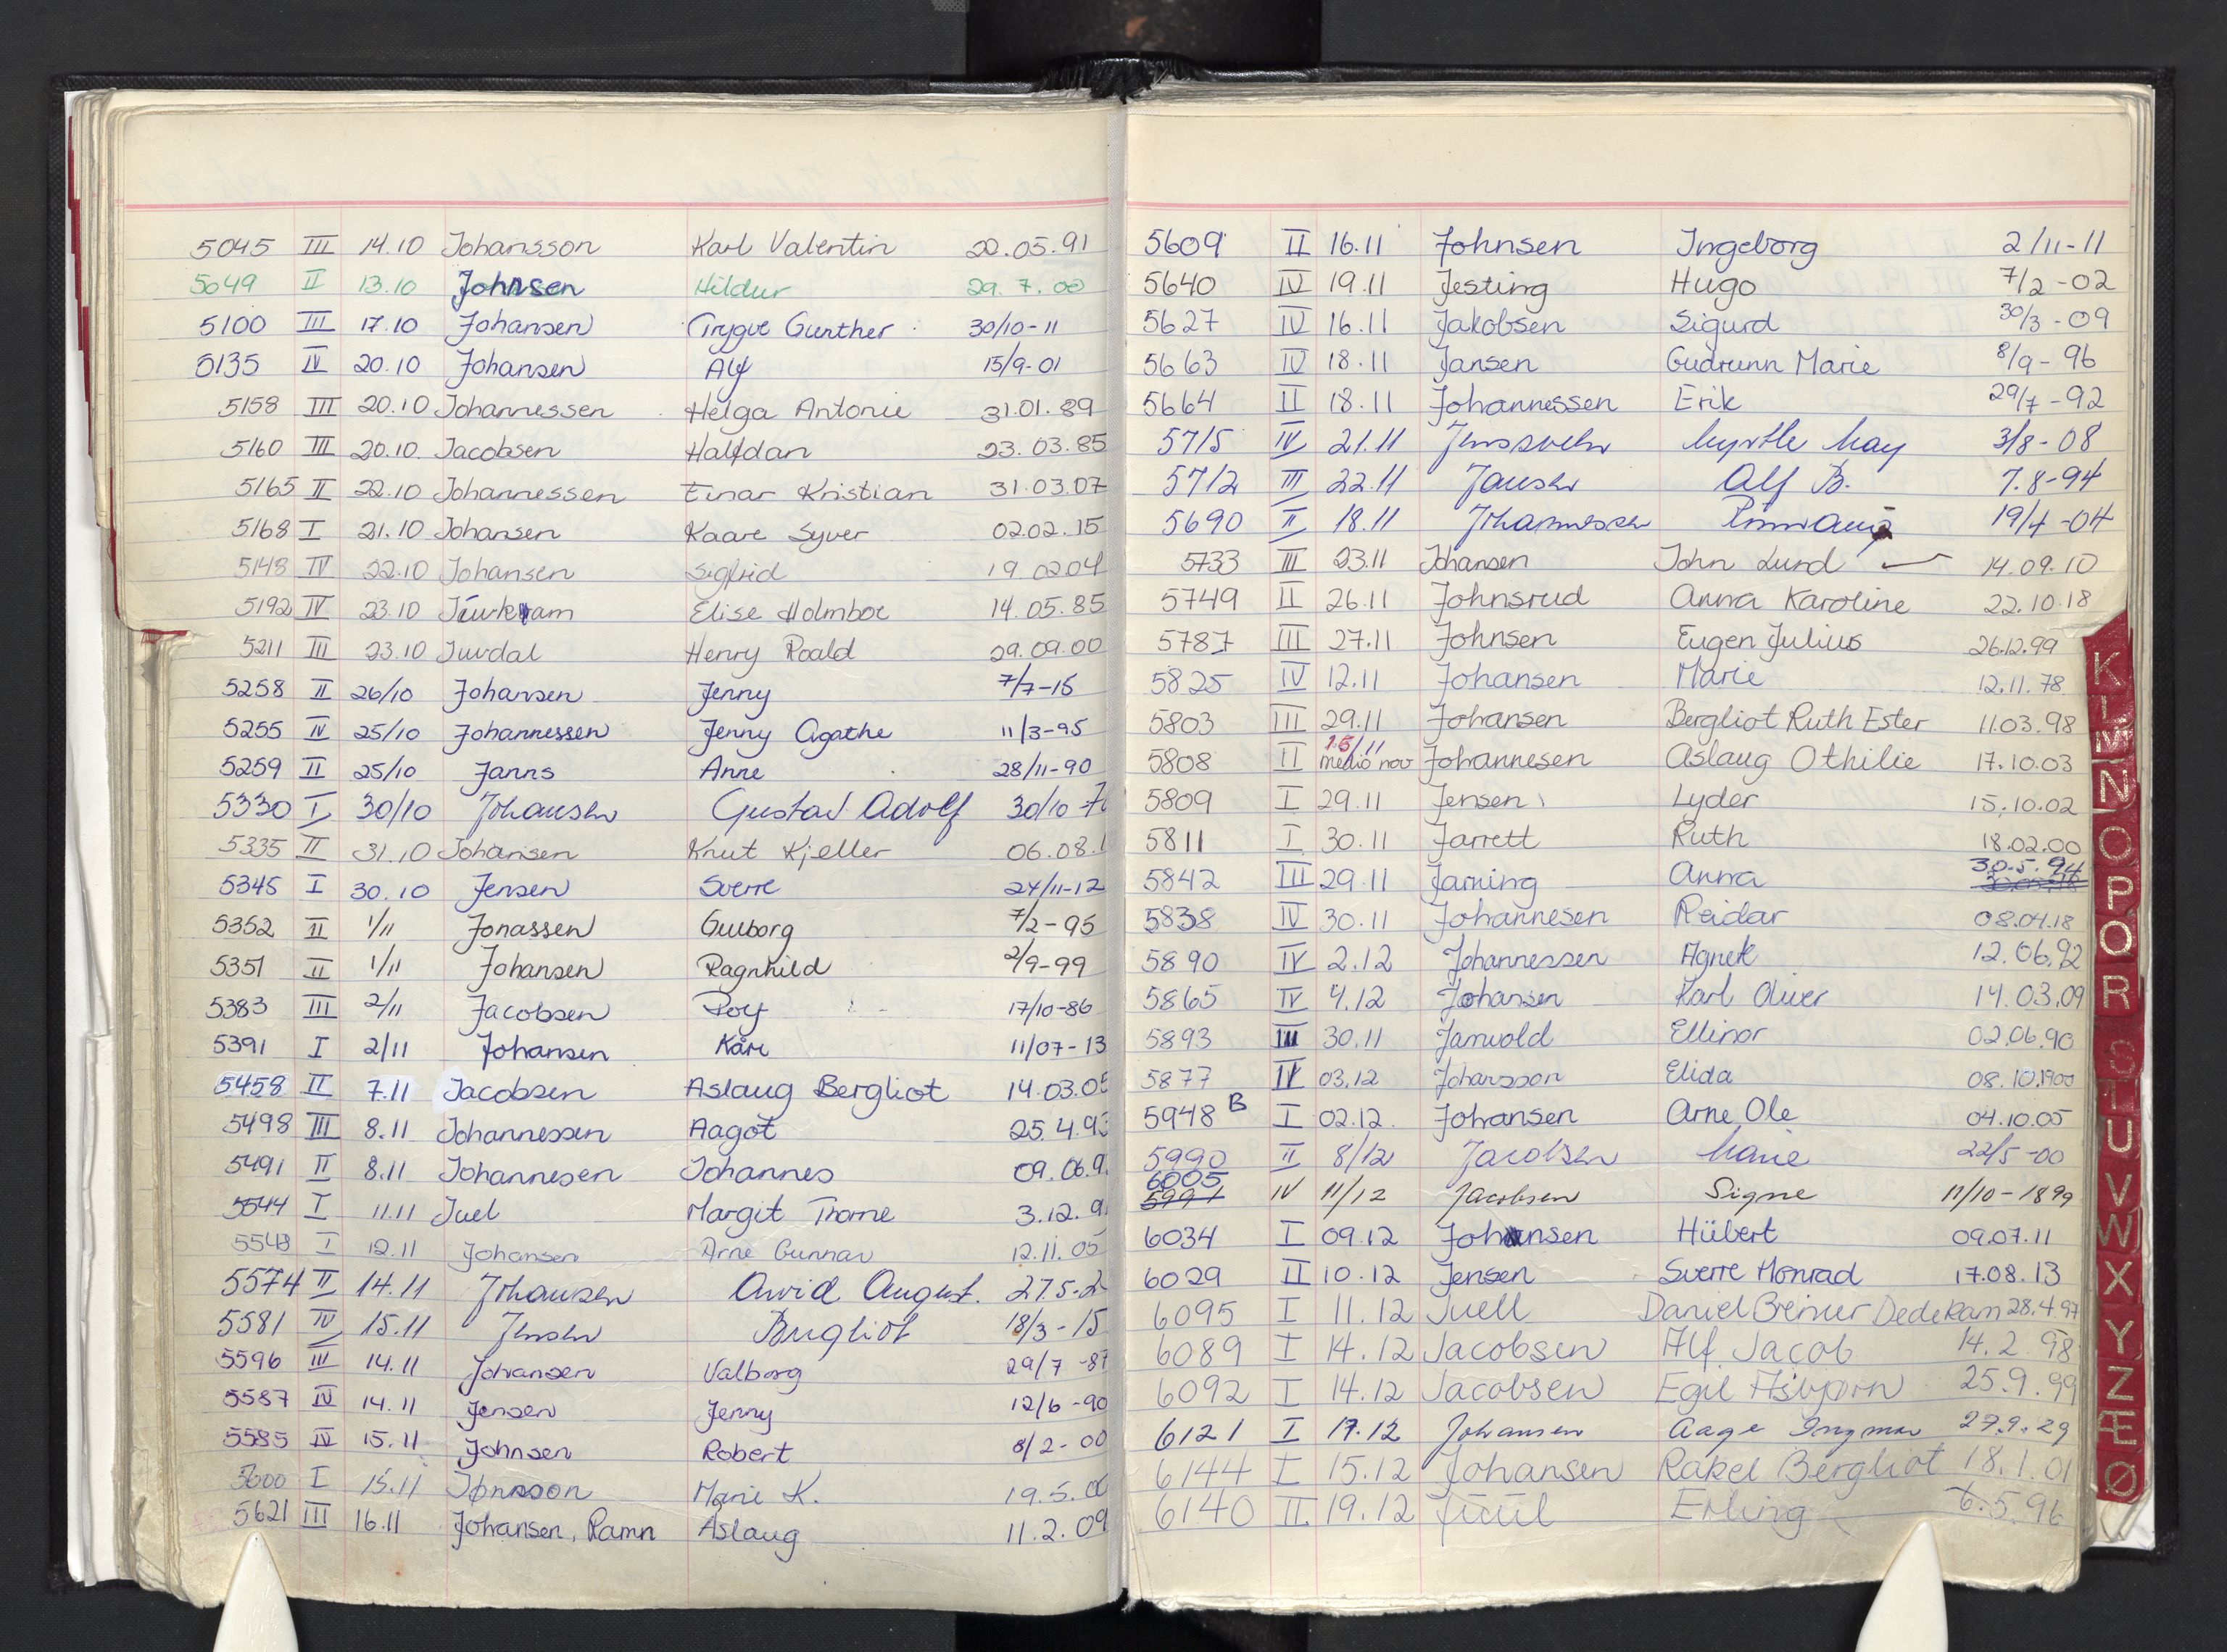 5045 III 14.10 Johansson Karl Valentin 22.05.91
5049 II 13.10 Johnsen Hildur 29.7.00
5100 III 17.10 Johansen Trygve Gunther 30/10-11
5135 IV 20.10 Johansen Alf 15/9-01
5158 III 20.10 Johannessen Helga Antonie 31.01.89
5160 III 20.10. Jacobsen Halfdan 23.03.85
5165 II 22.10 Johannessen Einar Kristian 31.03.07
5168 I 21.10 Johansen Kaare Syver 02.02.15
5148 IV 22.10 Johansen Sigfrid 19.02.04
5192 IV 23.10 Elise Holmboe 14.05.85
5211 III 23.10 Juvdal Henry Roald 29.09.00
5258 II 26/10 Johansen Jenny 7/7-15
5255 IV 25/10 Johannessen Jenny Agathe 11/3-95
5259 II 25/10 Janns Anne 28/11-90
5330 I 30/10 Johansen Gustav Adolf 30/10-7
5335 II 31.10 Johansen Knut Kjeller 06.08.1
5345 I 30.10 Jensen Sverre 24/11-12
5352 II 1/11 Jonassen Gulborg 7/2-95
5351 II 1/11 Johansen Ragnhild 2/9-99
5383 III 2/11 Jacobsen Roy 17/10-86
5391 I 2/11 Johansen Kåre 11/07-13
5458 II 7.11 Jacobsen Aslaug Bergliot 14.03.05
5498 III 8.11 Johannessen Aagot 25.4.93
5491 II 8.11 Johannesen Johannes 09.06.9
5544 I 11.11 Juel Margit Thorne 3.12.9
5548 I 12.11 Johansen Arne Gunnar 12.11.05
5574 II 14.11 Johansen Arvid August. 27.5.2
5581 IV 15.11 Jensen Bergliot 18/3-15
5596 III 14.11 Johansen Valborg 29/7-87
5587 IV 14.11 Jensen Jenny 12/6-90
5585 IV 15.11 Johnsen Robert 8/2-00
5600 I 15.11 Jønsson Marie K. 19.5.06
5621 III 16.11 Johansen, Ramn Aslaug 11.2.09
5609 II 16.11 Johnsen Ingeborg 2/11-11
5640 IV 19.11 Jesting Hugo 7/2-02
5627 IV 16.11 Jakobsen Sigurd 30/3-09
5663 IV 18.11 Jansen Gudrunn Marie 8/9-96
5664 II 18.11 Johannessen Erik 29/7-92
5715 IV 21.11 Myrtle May 3/8-08
5712 III 22.11 Jansen Alf B. 7.8-94
5690 II 18.11 Johannessen 19/4-04
5733 III 23.11 Johansen John Lund 14.09.10
5749 II 26.11 Johnsrud Anna Karoline 22.10.18
5787 III 27.11 Johnsen Eugen Julius 26.12.99
5825 IV 12.11 Johansen Marie 12.11.78
5803 III 29.11 Johansen Bergliot Ruth Ester 11.03.98
15/11
5808 II medio nov Johannesen Aslaug Othilie 17.10.03
5809 I 29.11 Jensen Lyder 15.10.02
5811 I 30.11 Jarrett Ruth 18.02.00
5842 III 29.11 Jarning Anna 30.5.94
5838 IV 30.11 Johannesen Reidar 08.04.18
5890 IV 2.12 Johannessen Agnete 12.06.92
5865 IV 4.12 Johansen Karl Oliver 14.03.09
5893 III 30.11 Janvold Ellinor 02.06.90
5877 IV 03.12 Johansson Elida 08.10.1900
5948 B I 02.12. Johansen Arne Ole 04.10.05
5990 II 8/12 Jacobsen Marie 22/5-00
6005
5991 IV 11/12 Jacobsen Signe 11/10-1899
6034 I 09.12 Johansen Hübert 09.07.11
6029 II 10.12 Jensen Sverre Monrad 17.08.13
6095 I 11.12 Juell Daniel Greiner Dedekam 28.4.97
6089 I 14.12 Jacobsen Alf Jacob 14.2.98
6092 I 14.12 Jacobsen Egil Asbjørn 25.9.99
6121 I 17.12 Johansen Aage Ingmar 27.9.29
6144 I 15.12 Johansen Rakel Bergliot 18.1.01
6140 II 19.12 Juul Erling 6.5.96
K
L
M
N
O
P
Q
R
S
T
U
V
W
X
Y
Z
Æ
Ø